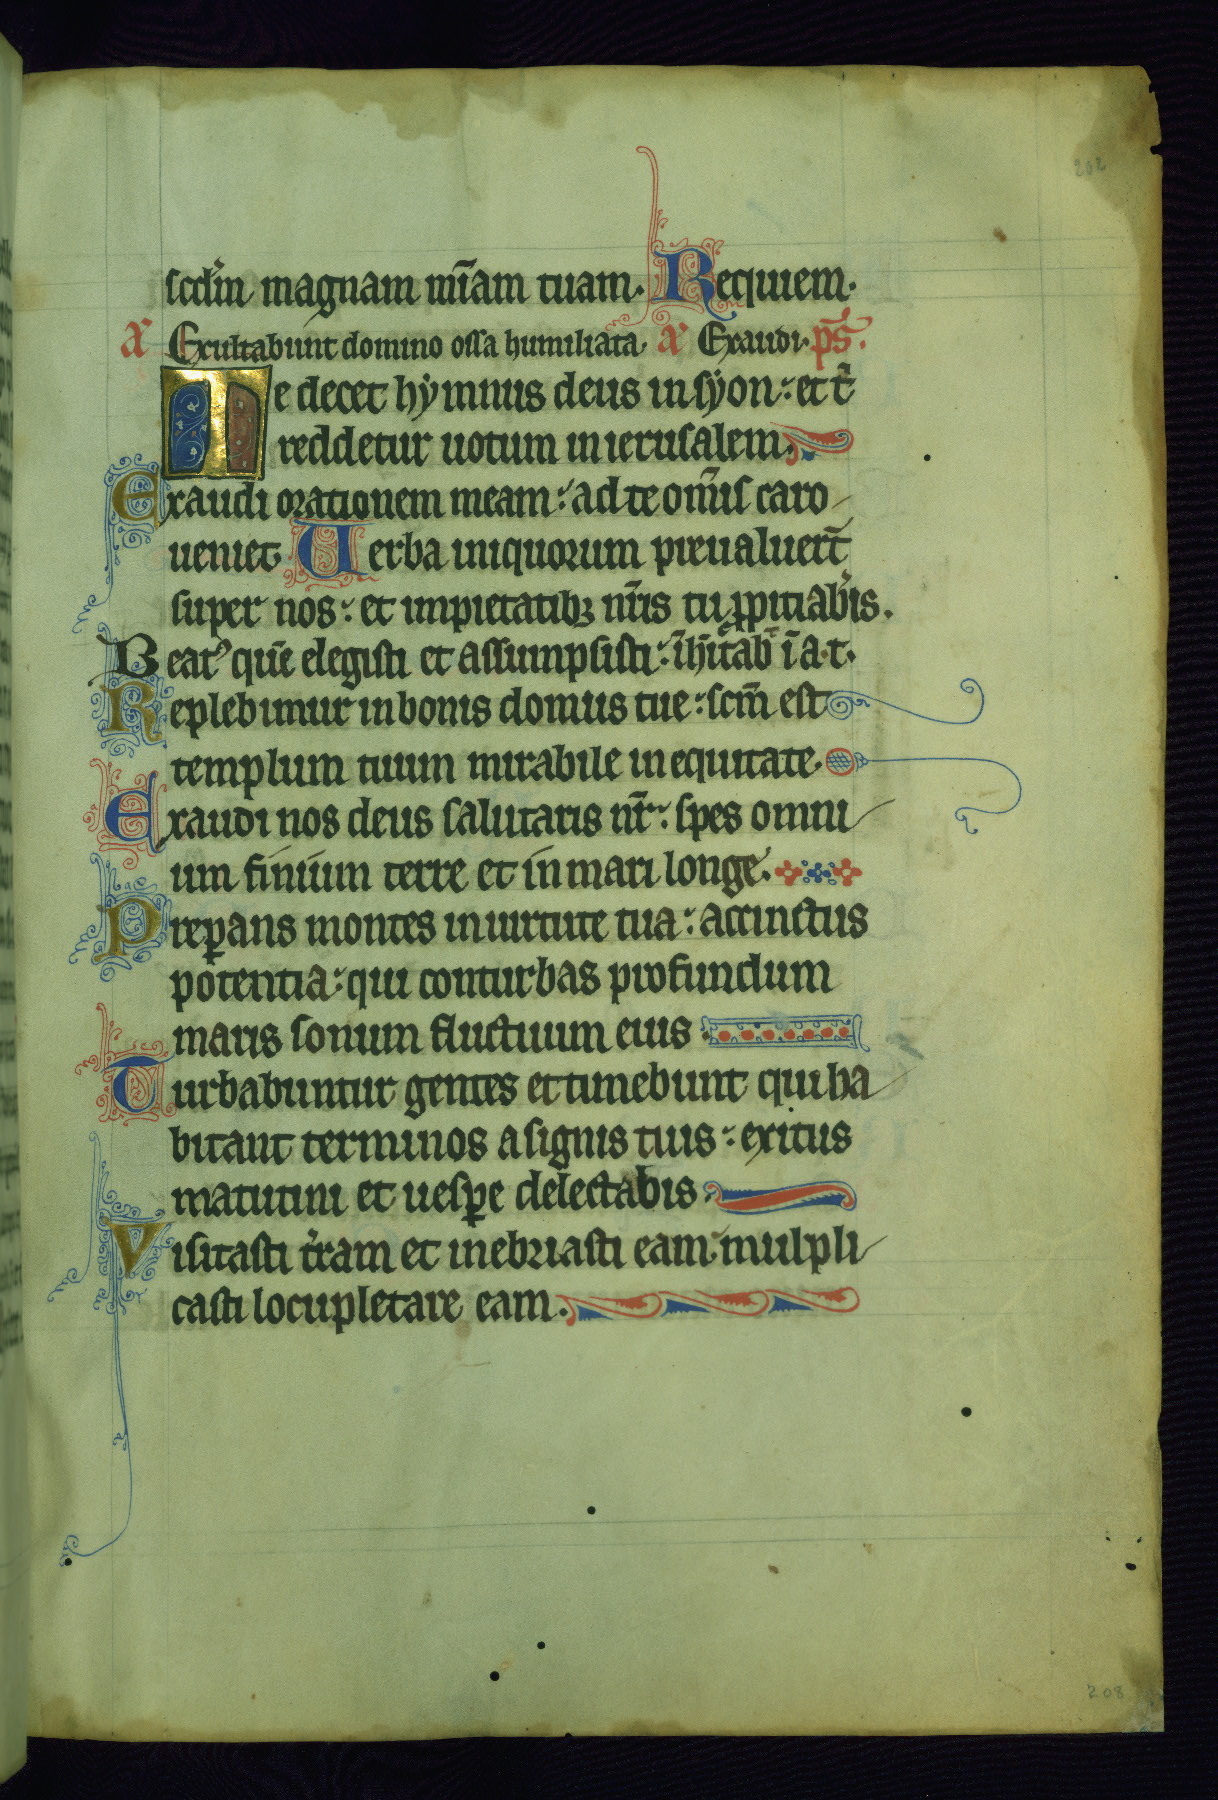 202
scdm̄ magnam mīam tuam. Requiem.
a᷑ Exultabunt domino ossa humiliata. a᷑ Exaudi. ps̄.
Te decet hẏmnus deus in sẏon: et t̄
reddetur uotum in ierusalem.
Exaudi orationem meam: ad te om̄is caro
ueniet. Uerba iniquorum preualuer̄t
super nos: et impietatibꝫ nr̄is tu ꝓpitiab̄is.
Beatꝰ quē elegisti et assumpsisti: īhītab̄ ī a. t.
Replebimur in bonis domus tue: scm̄ est
templum tuum mirabile in equitate.
Exaudi nos deus salutaris nr̄: spes omni
um finium terre et in mari longe.
Preꝑans montes in uirtute tua: accinctus
potentia: qui conturbas profundum
maris sonum fluctuum eius.
Turbabuntur gentes et timebunt qui ha
bitant terminos a signis tuis: exitus
matutini et uesꝑe delectabis.
Visitasti t̄ram et inebriasti eam: mulpli
casti locupletare eam.
208